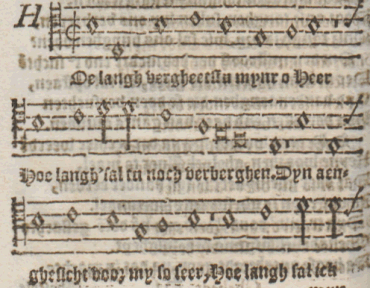 H
Oe langh vergheetstu mynr o Heer
Hoe langh sal tu noch verberghen. Dyn aen-
ghesicht voor my so seer, Hoe langh sal ick